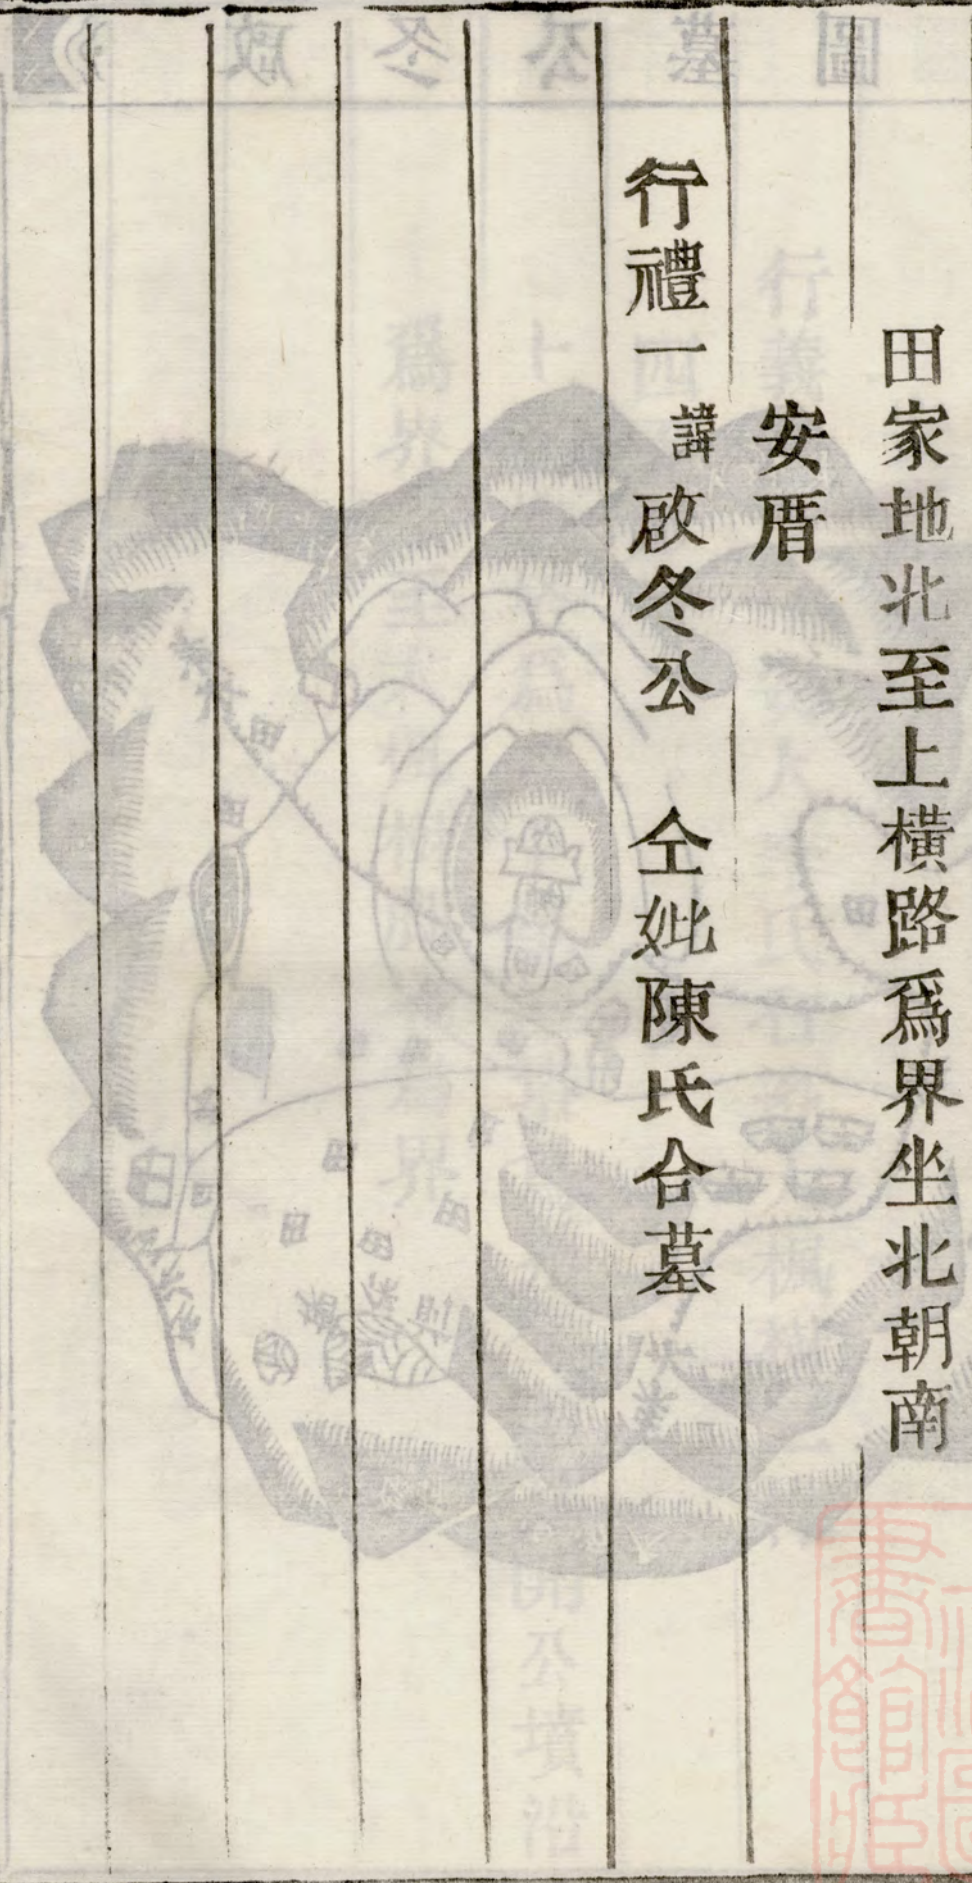 田家地北至上橫路爲界坐北朝南
安厝
行禮一 諱 啟冬公 仝妣陳氏合墓